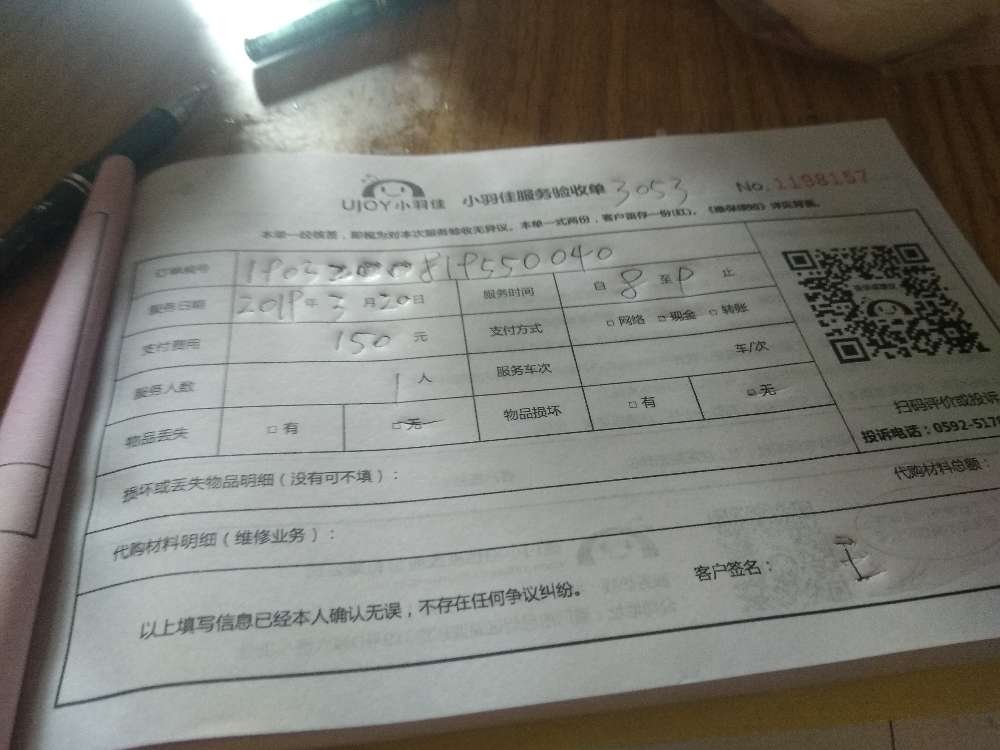 UJOY小羽佳 小羽佳服务验收单 3053 No.1198157
本单一经核签，即视为对本次服务验收无异议。本单一式两份，客户留存一份(红)。
订单编号
服务日期 2019年3月20日 服务时间 自 8 至 止
支付费用 150 元 支付方式 □ 网络 □ 现金 □ 转账
服务人数 1 人 服务车次 车/次
物品丢失 □ 有 □ 无 物品损坏 □ 有 □ 无
扫码评价或投诉
投诉电话：0592-517
损坏或丢失物品明细（没有可不填）：
代购材料明细（维修业务）： 代购材料总额：
以上填写信息已经本人确认无误，不存在任何争议纠纷。 客户签名：